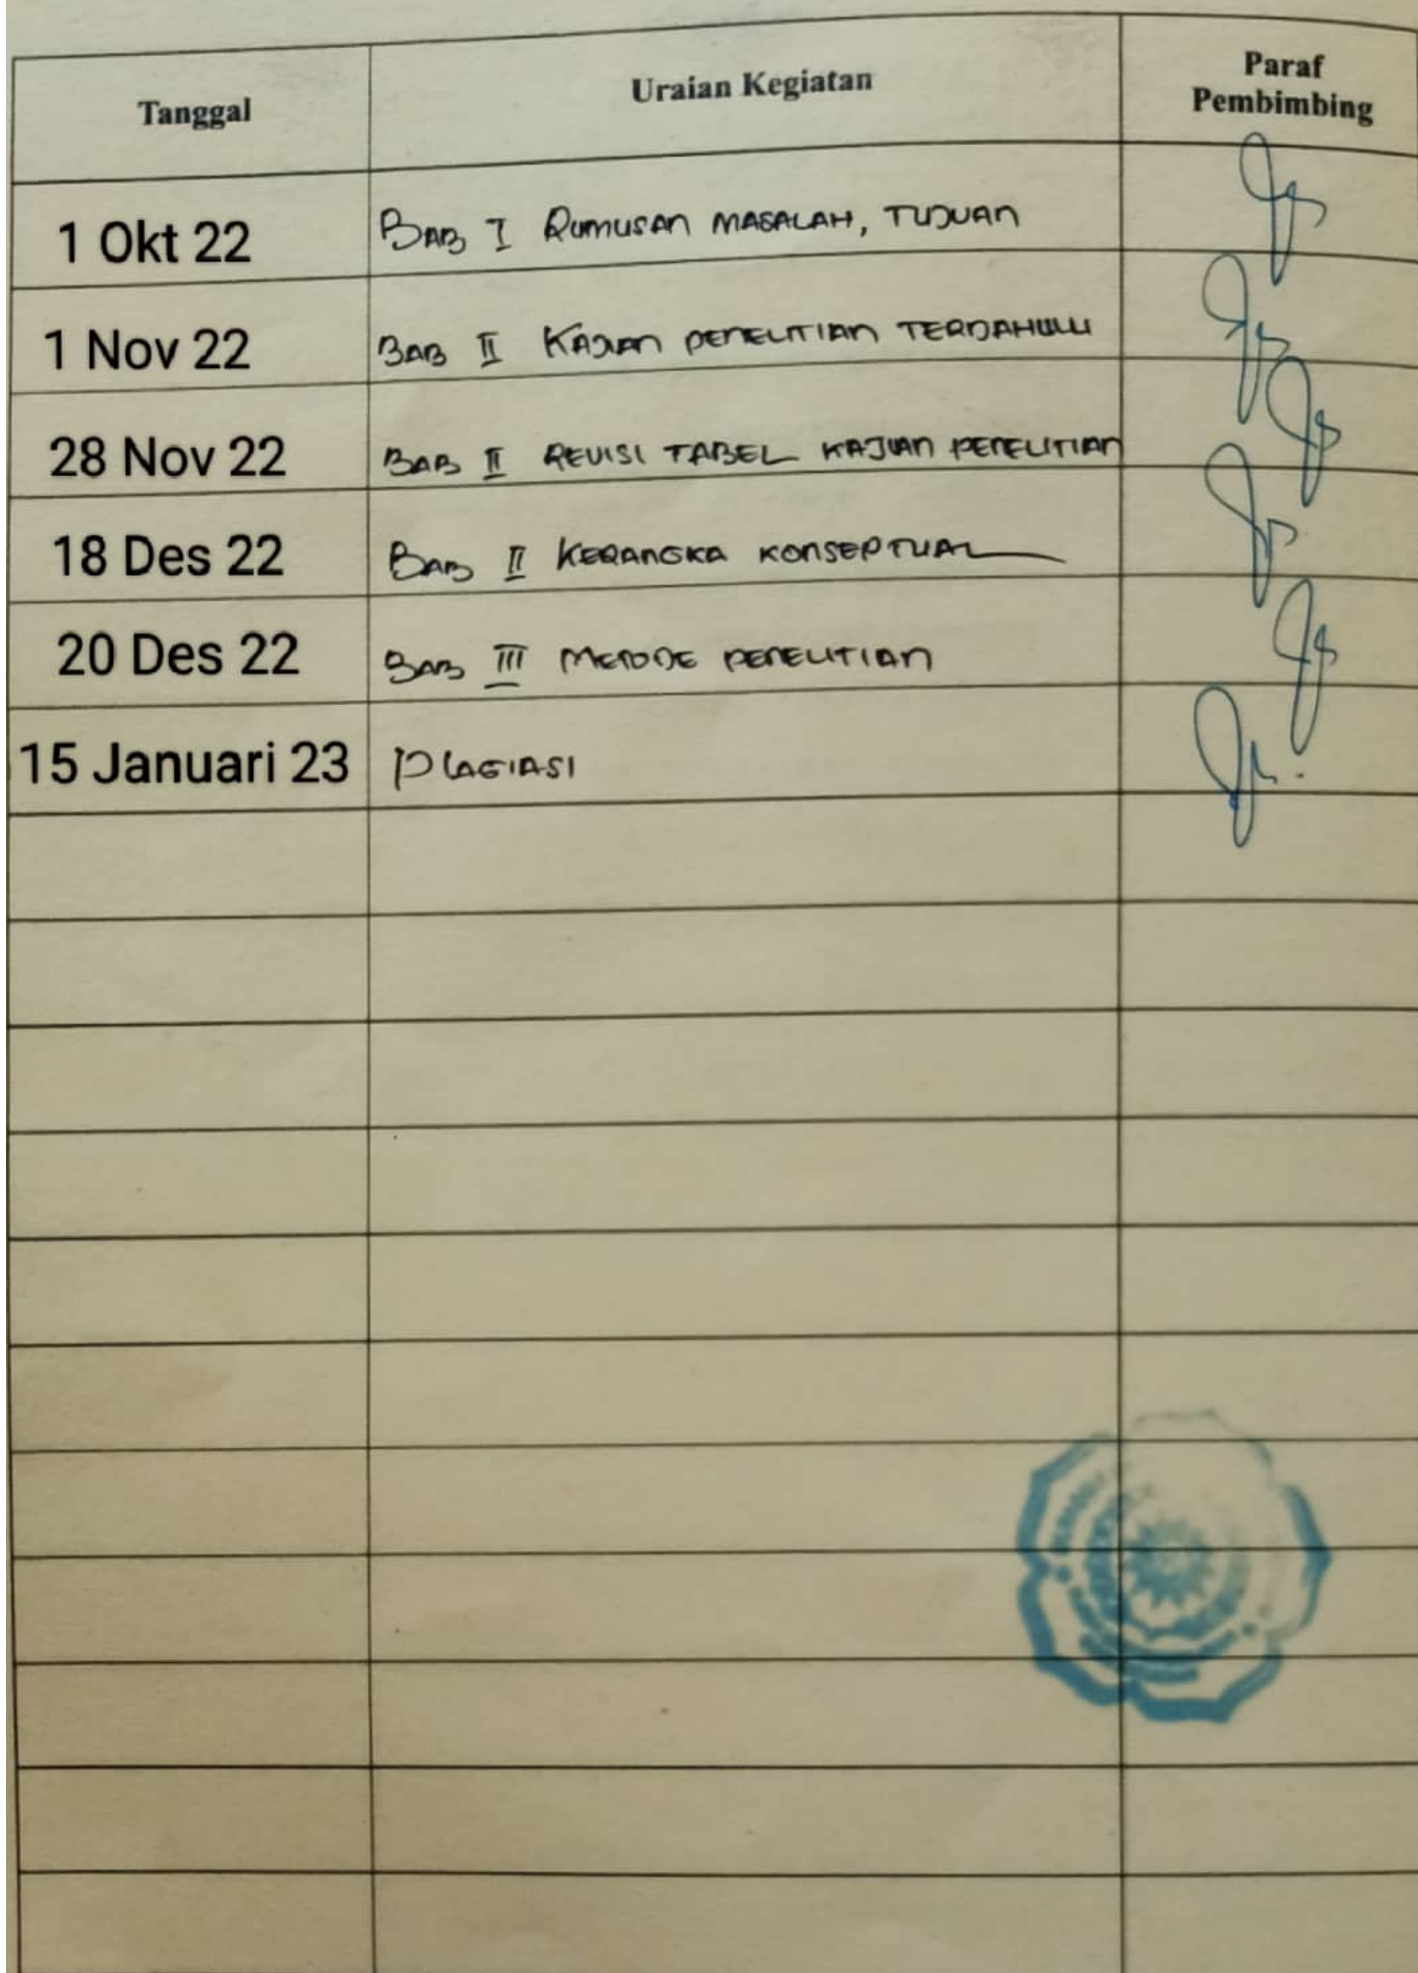 Tanggal
Uraian Kegiatan
Paraf
Pembimbing
1 Okt 22
BAB I RUMUSAN MASALAH, TUJUAN
1 Nov 22
BAB II KAJIAN PENELITIAN TERDAHULU
28 Nov 22
BAB II REVISI TABEL KAJIAN PENELITIAN
18 Des 22
BAB II KERANGKA KONSEPTUAL
20 Des 22
BAB III METODE PENELITIAN
15 Januari 23
PLAGIASI